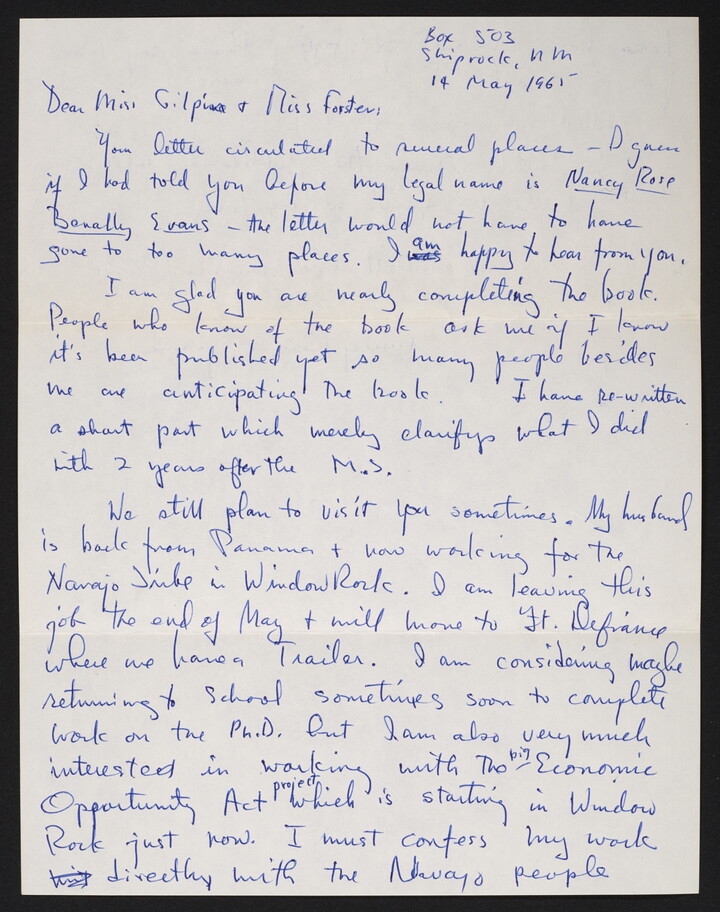 Box 503
Shiprock, NM
14 May 1965
Dear Miss Gilpin + Miss Forster;
Your letter circulated to several places – I guess
if I had told you before my legal name is Nancy Rose
Benally Evans – the letter would not have to have
gone to too many places. I was am happy to hear from you.
I am glad you are nearly completing the book.
People who know of the book ask me if I know
it's been published yet so many people besides
me are anticipating the book. I have re-written
a short part which merely clarifys what I did
with 2 years after the M.S.
We still plan to visit you sometimes. My husband
is back from Panama + now working for the
Navajo Tribe in Window Rock. I am leaving this
job the end of May + will move to Ft. Defiance
where we have a Trailer. I am considering maybe
returning to school sometimes soon to complete
work on the Ph.D. but I am also very much
interested in working with the big Economic
Opportunity Act project which is starting in Window
Rock just now. I must confess my work
directly with the Navajo people